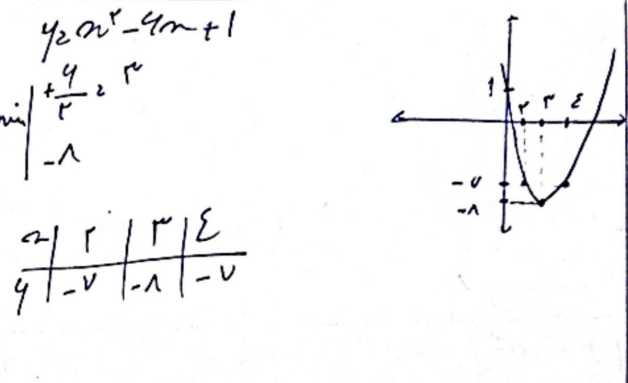 y = x^۲ - ۶x + ۱
min | +۶/۲ = ۳
-۸
x | ۲ | ۳ | ٤
y | -۷ | -۸ | -۷
۱
۲ ۳ ٤
-۷
-۸